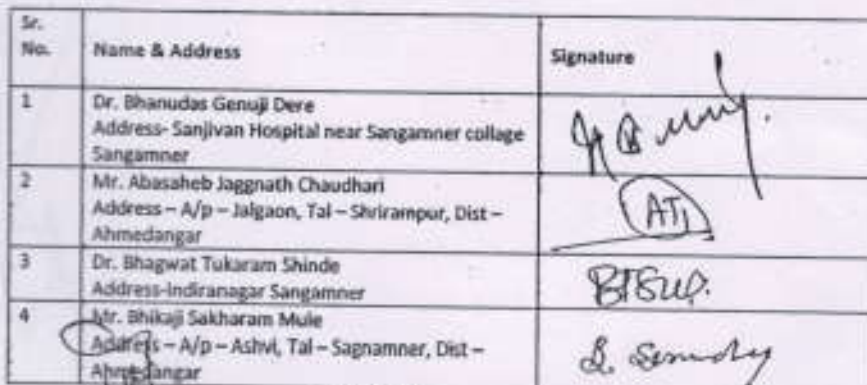 Sr.
No.
Name & Address
Signature
1
Dr. Bhanudas Genuji Dere
Address- Sanjivan Hospital near Sangamner collage
Sangamner
2
Mr. Abasaheb Jaggnath Chaudhari
Address – A/p – Jalgaon, Tal – Shrirampur, Dist –
Ahmedangar
3
Dr. Bhagwat Tukaram Shinde
Address-Indiranagar Sangamner
4
Mr. Bhikaji Sakharam Mule
Address – A/p – Ashvi, Tal – Sagnamner, Dist –
Ahmedangar